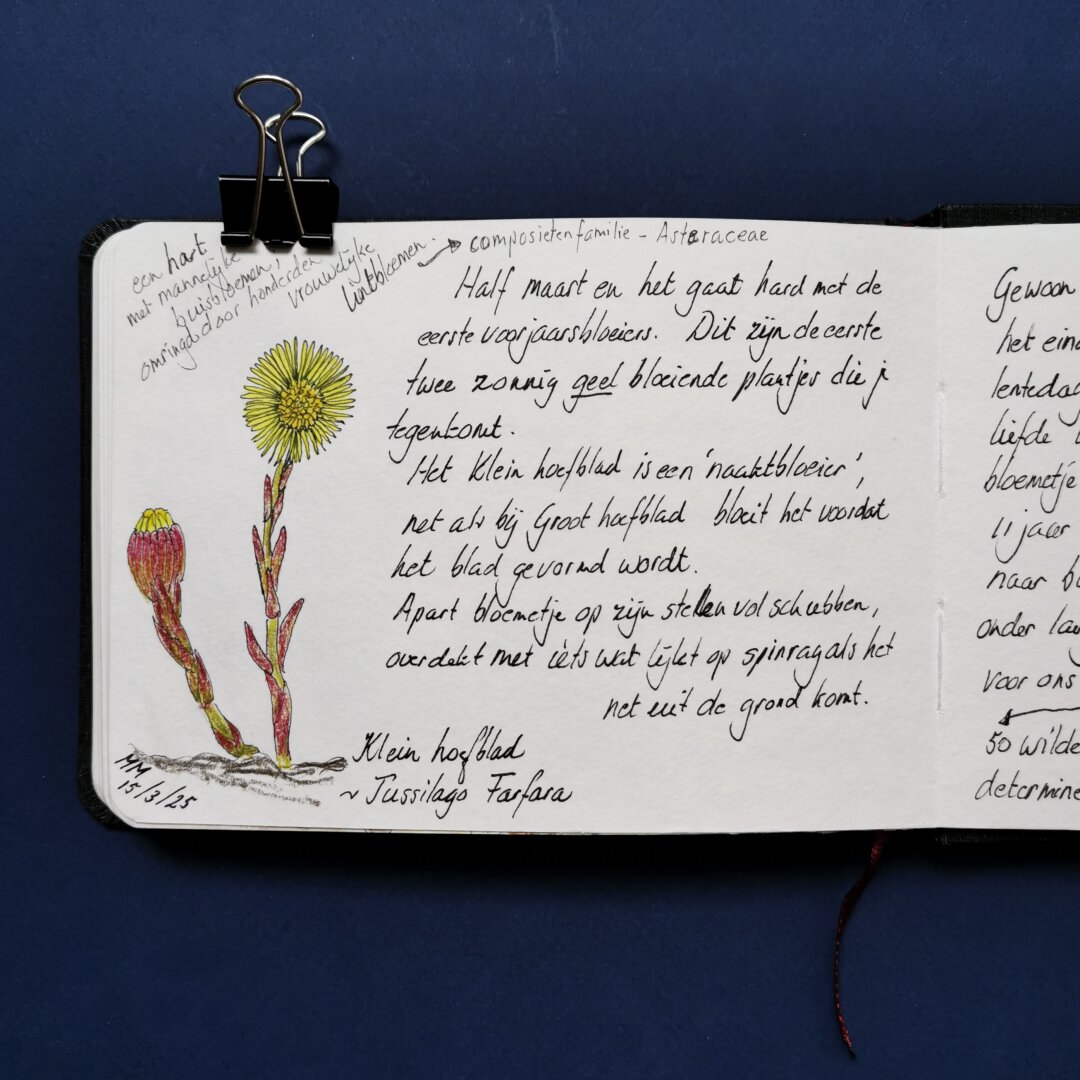 een hart
met mannelijke
buisbloemen,
omringd door honderden
vrouwelijke
lintbloemen.
composietenfamilie - Asteraceae
Half maart en het gaat hard met de
eerste voorjaarsbloeiers. Dit zijn de eerste
twee zonnig geel bloeiende plantjes die j
tegenkomt.
Het Klein hoefblad is een 'naaktbloeier',
net als bij Groot hoefblad bloeit het voordat
het blad gevormd wordt.
Apart bloemetje op zijn stelen vol schubben,
overdekt met iets wat lijkt op spinrag als het
net uit de grond komt.
Klein hoefblad
~ Tussilago Farfara
MM
15/3/25
Gewoon
het eind
lentedag
liefde
bloemetje
11 jaar
naar
onder
voor ons
50 wilde
determine